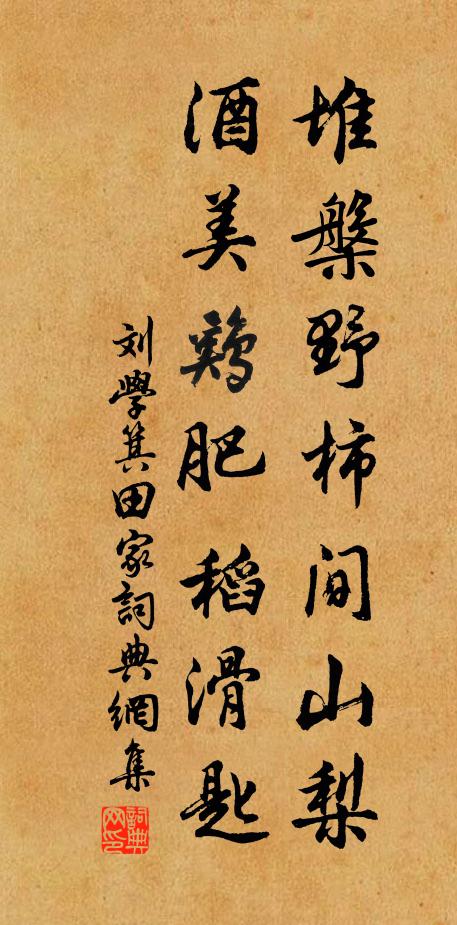 堆槃野柿間山梨
酒美鷄肥稻滑匙
刘學箕田家詞典網集
詞典网印